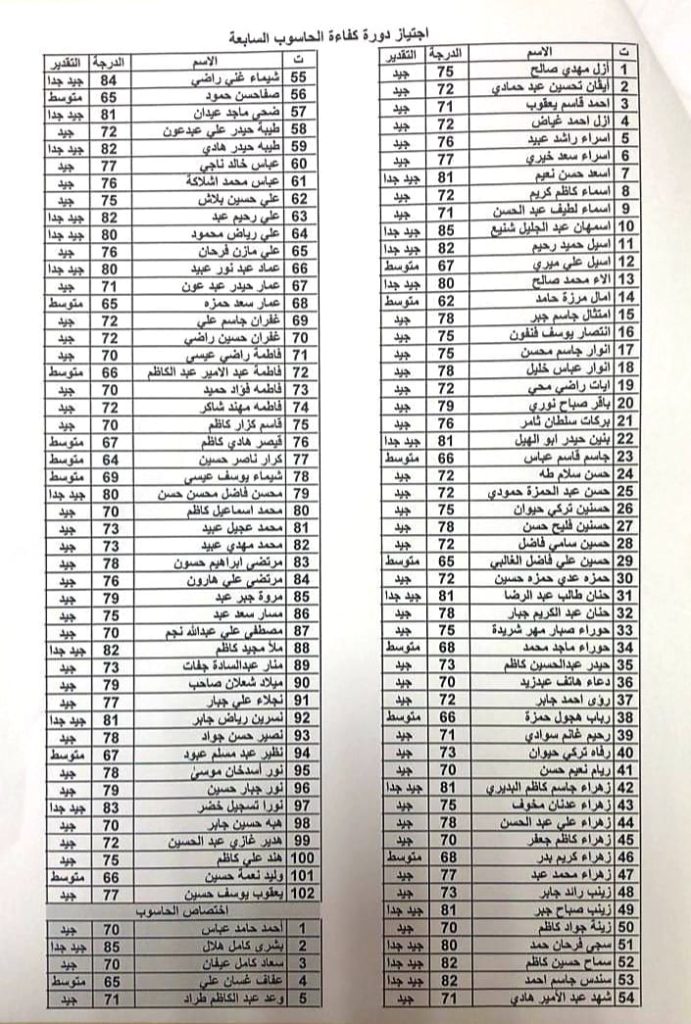 اجتياز دورة كفاءة الحاسوب السابعة
ت الاسم الدرجة التقدير
1 أزل مهدي صالح 75 جيد
2 أيفان تحسين عبد حمادي 72 جيد
3 احمد قاسم يعقوب 71 جيد
4 ازل احمد غياض 72 جيد
5 اسراء راشد عبيد 76 جيد
6 اسراء سعد خيري 77 جيد
7 اسعد حسن نعيم 81 جيد جدا
8 اسماء كاظم كريم 72 جيد
9 اسماء لطيف عبد الحسن 71 جيد
10 اسمهان عبد الجليل شنيع 85 جيد جدا
11 اسيل حميد رحيم 82 جيد جدا
12 اسيل علي ميري 67 متوسط
13 الاء محمد صالح 80 جيد جدا
14 امال مرزة حامد 62 متوسط
15 امتثال جاسم جبر 78 جيد
16 انتصار يوسف فنفون 75 جيد
17 انوار جاسم محسن 75 جيد
18 انوار عباس خليل 78 جيد
19 ايات راضي محي 72 جيد
20 باقر صباح نوري 79 جيد
21 بركات سلطان ثامر 76 جيد
22 بنين حيدر ابو الهيل 81 جيد جدا
23 جاسم قاسم عباس 66 متوسط
24 حسن سلام طه 72 جيد
25 حسن عبد الحمزة حمودي 72 جيد
26 حسنين تركي حيوان 75 جيد
27 حسنين فليح حسن 78 جيد
28 حسين سامي فاضل 72 جيد
29 حسين علي فاضل الغالبي 65 متوسط
30 حمزه عدي حمزه حسين 72 جيد
31 حنان طالب عبد الرضا 81 جيد جدا
32 حنان عبد الكريم جبار 78 جيد
33 حوراء صبار مهر شريدة 75 جيد
34 حوراء ماجد محمد 68 متوسط
35 حيدر عبدالحسين كاظم 73 جيد
36 دعاء هاتف عبدزيد 70 جيد
37 رؤى احمد جابر 72 جيد
38 رباب هجول حمزة 66 متوسط
39 رحيم غانم سوادي 71 جيد
40 رفاه تركي حيوان 73 جيد
41 ريام نعيم حسن 70 جيد
42 زهراء جاسم كاظم البديري 81 جيد جدا
43 زهراء عدنان مخوف 75 جيد
44 زهراء علي عبد الحسن 78 جيد
45 زهراء كاظم جعفر 70 جيد
46 زهراء كريم بدر 68 متوسط
47 زهراء محمد عبد 77 جيد
48 زينب رائد جابر 73 جيد
49 زينب صباح جبر 81 جيد جدا
50 زينة جواد كاظم 70 جيد
51 سجى فرحان حمد 80 جيد جدا
52 سماح حسين كاظم 82 جيد جدا
53 سندس جاسم احمد 82 جيد جدا
54 شهد عبد الأمير هادي 71 جيد
ت الاسم الدرجة التقدير
55 شيماء غني راضي 84 جيد جدا
56 صفاحسن حمود 65 متوسط
57 ضحى ماجد عيدان 81 جيد جدا
58 طيبة حيدر علي عبدعون 72 جيد
59 طيبه حيدر هادي 82 جيد جدا
60 عباس خالد ناجي 77 جيد
61 عباس محمد اشلاكة 76 جيد
62 علي حسين بلاش 75 جيد
63 علي رحيم عبد 82 جيد جدا
64 علي رياض محمود 80 جيد جدا
65 علي مازن فرحان 76 جيد
66 عماد عبد نور عبيد 80 جيد جدا
67 عمار حيدر عبد عون 71 جيد
68 عمار سعد حمزه 65 متوسط
69 غفران جاسم علي 72 جيد
70 غفران حسين راضي 72 جيد
71 فاطمة راضي عيسى 70 جيد
72 فاطمة عبد الامير عبد الكاظم 66 متوسط
73 فاطمه فؤاد حميد 70 جيد
74 فاطمه مهند شاكر 72 جيد
75 قاسم كزار كاظم 70 جيد
76 قيصر هادي كاظم 67 متوسط
77 كرار ناصر حسين 64 متوسط
78 شيماء يوسف عيسى 69 متوسط
79 محسن فاضل محسن حسن 80 جيد جدا
80 محمد اسماعيل كاظم 70 جيد
81 محمد عجيل عبيد 73 جيد
82 محمد مهدي عبيد 73 جيد
83 مرتضى ابراهيم حسون 78 جيد
84 مرتضى علي هارون 76 جيد
85 مروة جبر عبد 79 جيد
86 مسار سعد عبد 75 جيد
87 مصطفى علي عبدالله نجم 70 جيد
88 ملأ مجيد كاظم 82 جيد جدا
89 منار عبدالسادة جفات 73 جيد
90 ميلاد شعلان صاحب 79 جيد
91 نجلاء علي جبار 77 جيد
92 نسرين رياض جابر 81 جيد جدا
93 نصير حسن جواد 78 جيد
94 نظير عبد مسلم عبود 67 متوسط
95 نور اسدخان موسى 78 جيد
96 نور جبار حسين 79 جيد
97 نورا تسجيل خضر 83 جيد جدا
98 هبه حسين جابر 70 جيد
99 هدير غازي عبد الحسين 72 جيد
100 هند علي كاظم 75 جيد
101 وليد نعمة حسين 66 متوسط
102 يعقوب يوسف حسين 77 جيد
اختصاص الحاسوب
1 أحمد حامد عباس 70 جيد
2 بشرى كامل هلال 85 جيد جدا
3 سعاد كامل عيفان 70 جيد
4 عفاف غسان علي 65 متوسط
5 وعد عبد الكاظم طراد 71 جيد